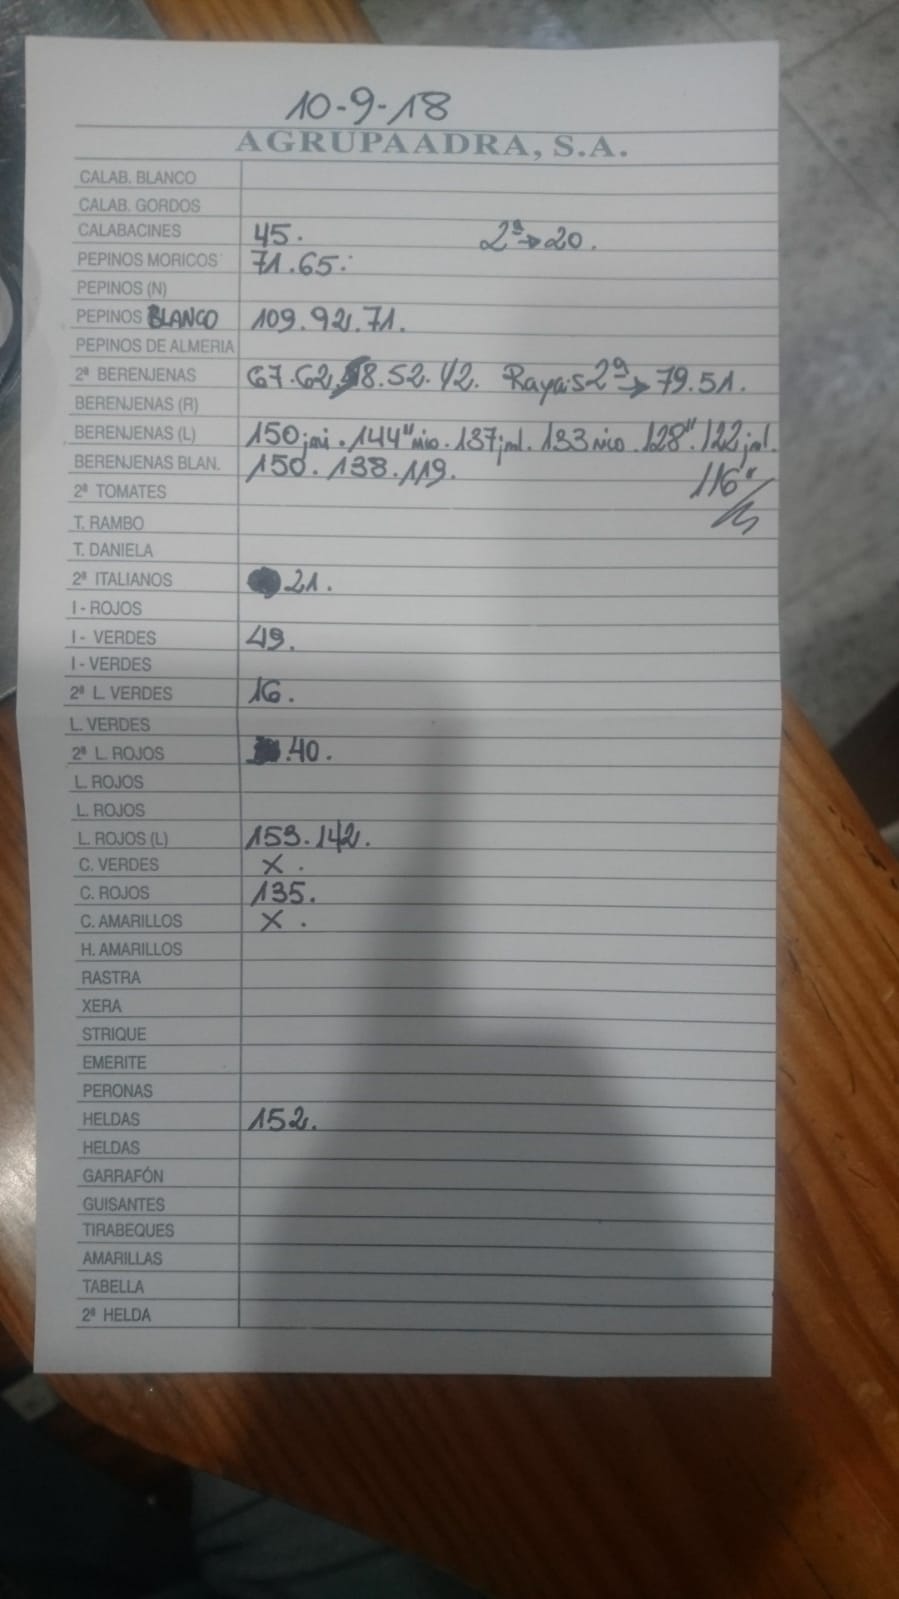 10-9-18
AGRUPAADRA, S.A.
CALAB. BLANCO
CALAB. GORDOS
CALABACINES 45. 2ª→20.
PEPINOS MORICOS 71.65.
PEPINOS (N)
PEPINOS BLANCO 109.92.71.
PEPINOS DE ALMERIA
2ª BERENJENAS 67.62. 58.52.42. Rayas 2ª→79.51.
BERENJENAS (R)
BERENJENAS (L) 150 . 144" . 137 . 133 . 128" . 122 .
BERENJENAS BLAN. 150.138.119. 116"
2ª TOMATES
T. RAMBO
T. DANIELA
2ª ITALIANOS 21.
I - ROJOS
I - VERDES 49.
I - VERDES
2ª L. VERDES 16.
L. VERDES
2ª L. ROJOS .40.
L. ROJOS
L. ROJOS
L. ROJOS (L) 153.142.
C. VERDES X .
C. ROJOS 135.
C. AMARILLOS X .
H. AMARILLOS
RASTRA
XERA
STRIQUE
EMERITE
PERONAS
HELDAS 152.
HELDAS
GARRAFÓN
GUISANTES
TIRABEQUES
AMARILLAS
TABELLA
2ª HELDA